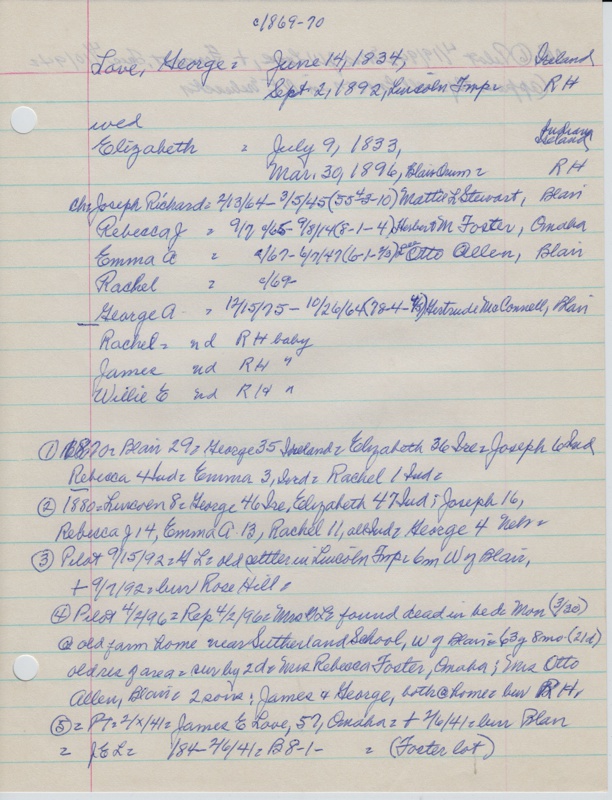 c/869-70
Love, George = June 14, 1834, Ireland
Sept 2, 1892, Lincoln Tmp = R H
wed
Elizabeth = July 9, 1833, Indiana Ireland
Mar. 30, 1896, Blair = R H
ch: Joseph Richard = 2/13/64 - 3/5/45 Mattie L Stewart, Blair
Rebecca J = 9/7 c/65 - 9/8/14 (8-1-4) Herbert M Foster, Omaha
Emma A = c/67 - 6/7/47 Otto Allen, Blair
Rachel = c/69-
George A = 12/15/75 - 10/26/64 Gertrude McConnell, Blair
Rachel = nd R H baby
James nd R H "
Willie E nd R H "
① 1870 = Blair 29 = George 35 Ireland = Elizabeth 36 Ire = Joseph 6 Ind
Rebecca 4 Ind = Emma 3, Ind = Rachel 1 Ind =
② 1880 = Lincoln 8 = George 46 Ire, Elizabeth 47 Ind; Joseph 16,
Rebecca J 14, Emma A 13, Rachel 11, all Ind = George 4 Neb =
③ Pilot 9/15/92 = G L = old settler in Lincoln Tmp = 6 m W of Blair,
+ 9/7/92 = burr Rose Hill =
④ Pilot 4/2/96 = Rep 4/2/96 = Mrs G L found dead in bed = Mon (3/30)
@ old farm home near Sutherland School, W of Blair = 63 y 8 mo (21d)
old res of area = sur by 2 d = Mrs Rebecca Foster, Omaha; Mrs Otto
Allen, Blair = 2 sons; James & George, both @ home = burr R H,
⑤ = Pt = 2/x/41 = James E Love, 57, Omaha = + 2/6/41 = burr Blair
= J E L = 184 - 2/6/41 = B8-1- = (Foster lot)